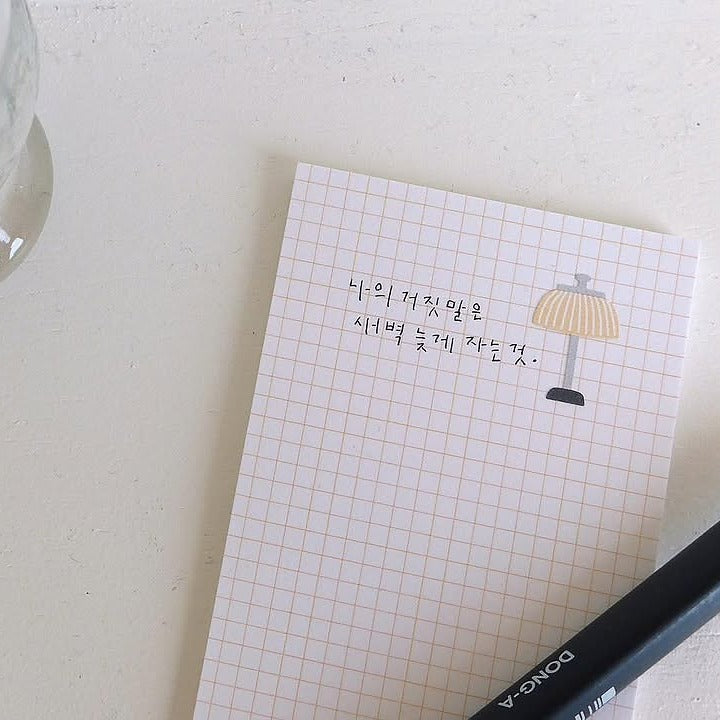 나의 거짓말은
새벽 늦게 자는것.
DONG-A